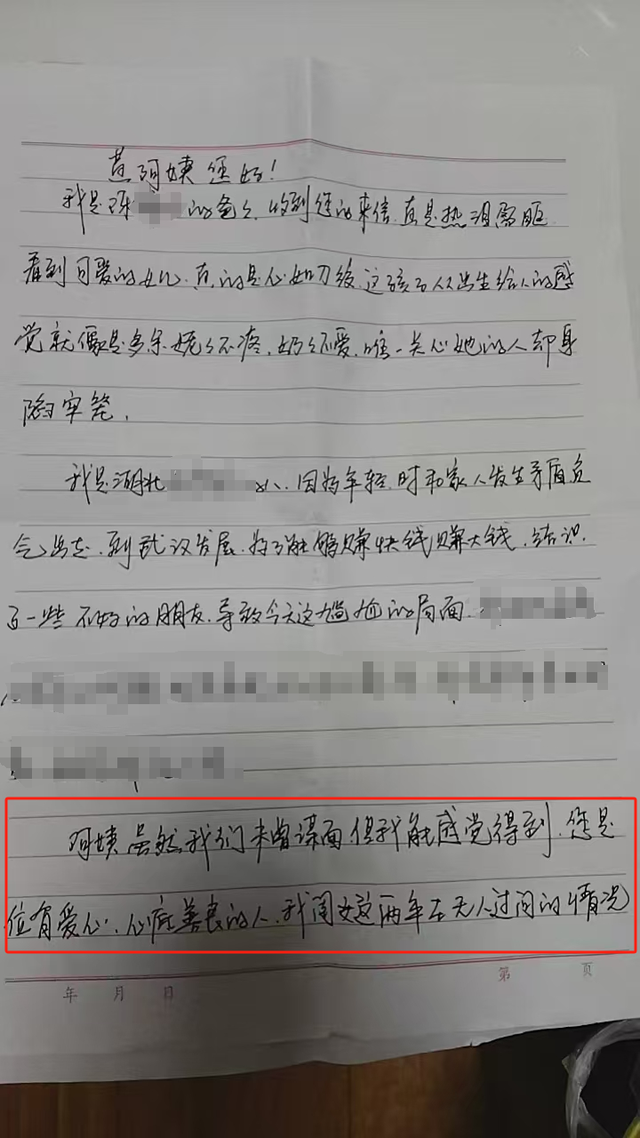 黄阿姨您好!
我是陈 的爸爸,收到您的来信,真是热泪盈眶
看到可爱的女儿,真的是心如刀绞,这孩子从出生给人的感
觉就像是多余,姥姥不疼,奶奶不爱,唯一关心她的人却身
陷牢笼,
我是湖北 人、因为年轻时和家人发生矛盾负
气出走、到武汉发展,为了能够赚快钱赚大钱,结识
了一些不好的朋友,导致今天这尴尬的局面,
阿姨虽然我们未曾谋面但我能感觉得到,您是
位有爱心、心底善良的人,我闺女这两年在无人过问的情况
年 月 日
第 页